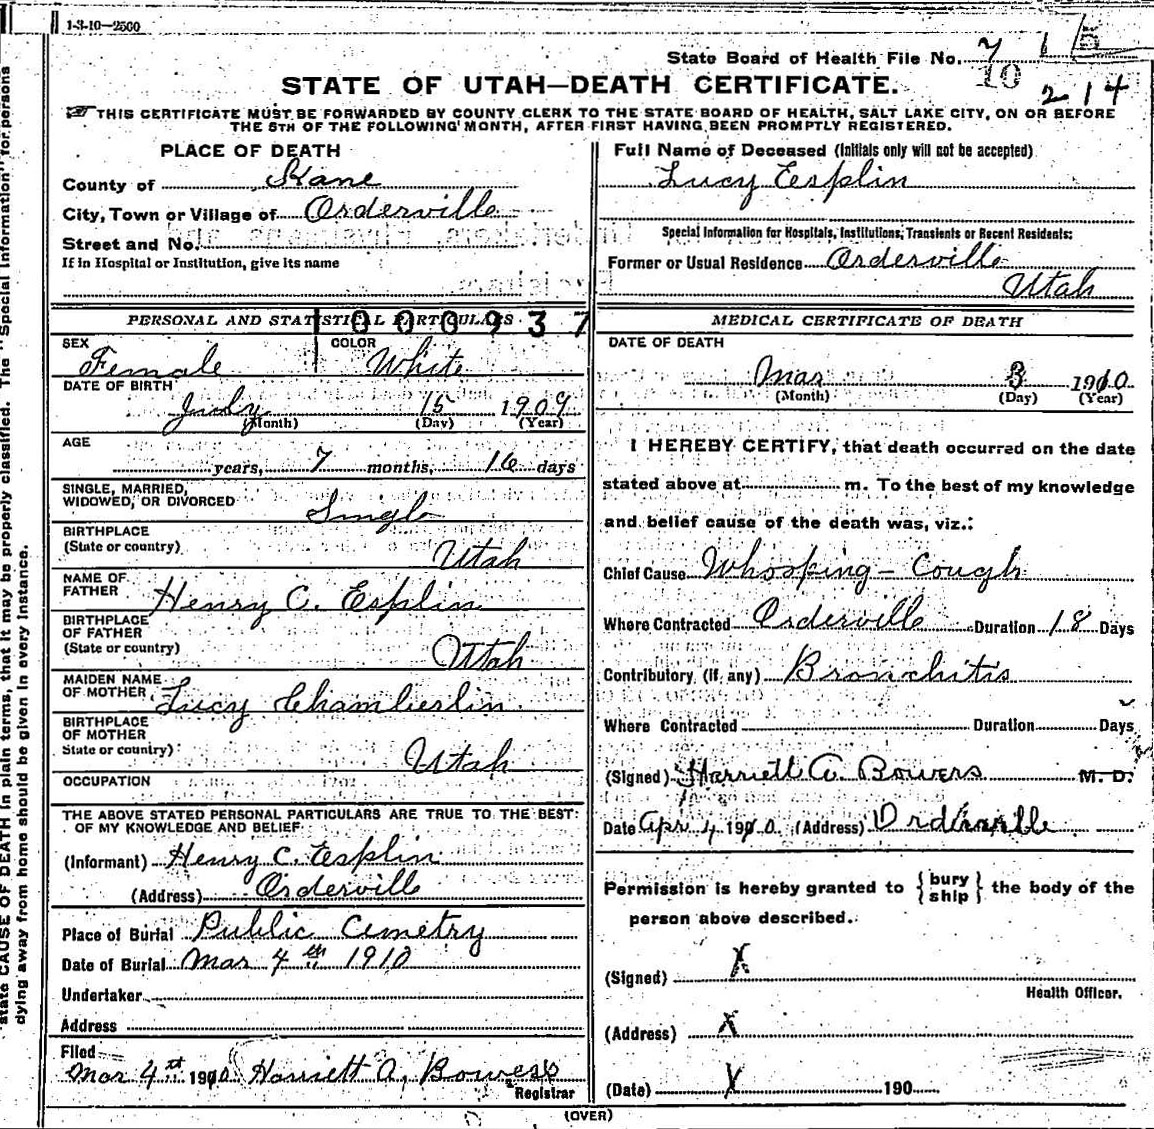 1-3-10-2500
State Board of Health File No. 7 1 5
10
214
STATE OF UTAH—DEATH CERTIFICATE.
THIS CERTIFICATE MUST BE FORWARDED BY COUNTY CLERK TO THE STATE BOARD OF HEALTH, SALT LAKE CITY, ON OR BEFORE
THE 5TH OF THE FOLLOWING MONTH, AFTER FIRST HAVING BEEN PROMPTLY REGISTERED.
PLACE OF DEATH
County of Kane
City, Town or Village of Orderville
Street and No.
If in Hospital or Institution, give its name
Full Name of Deceased (Initials only will not be accepted)
Lucy Esplin
Special Information for Hospitals, Institutions, Transients or Recent Residents:
Former or Usual Residence Orderville
Utah
PERSONAL AND STATISTICAL PARTICULARS
1000937
SEX Female
COLOR White
DATE OF BIRTH
July 15 1909
(Month) (Day) (Year)
AGE
years, 7 months, 16 days
SINGLE, MARRIED,
WIDOWED, OR DIVORCED Single
BIRTHPLACE
(State or country) Utah
NAME OF
FATHER Henry C. Esplin
BIRTHPLACE
OF FATHER
(State or country) Utah
MAIDEN NAME
OF MOTHER Lucy Chamberlin
BIRTHPLACE
OF MOTHER
State or country) Utah
OCCUPATION
THE ABOVE STATED PERSONAL PARTICULARS ARE TRUE TO THE BEST
OF MY KNOWLEDGE AND BELIEF
(Informant) Henry C. Esplin
(Address) Orderville
Place of Burial Public Cemetry
Date of Burial Mar 4th 1910
Undertaker
Address
Filed
Mar 4th 1910 Harriett A. Bowers
Registrar
MEDICAL CERTIFICATE OF DEATH
DATE OF DEATH
Mar 3 1910
(Month) (Day) (Year)
I HEREBY CERTIFY, that death occurred on the date
stated above at m. To the best of my knowledge
and belief cause of the death was, viz.:
Chief Cause Whooping - Cough
Where Contracted Orderville Duration 18 Days
Contributory (if any) Bronchitis
Where Contracted Duration Days
(Signed) Harriett A. Bowers M. D.
Date Apr 4 1910 (Address) Orderville
Permission is hereby granted to {bury
ship} the body of the
person above described.
(Signed) X
Health Officer.
(Address) X
(Date) X 190
(OVER)
state CAUSE OF DEATH in plain terms, that it may be properly classified. The "Special Information" for persons
dying away from home should be given in every instance.